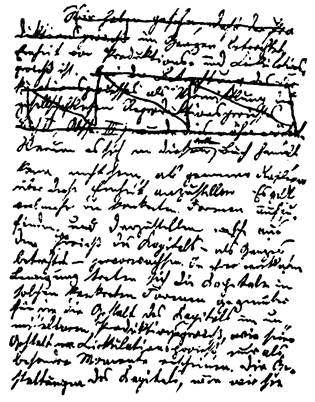 Wir haben gesehen, daß der Pro
duktionsprozeß im Ganzen betrachtet,
Einheit von Produktions- und Cirkulations
prozeß ist. Betrachtung des
als
gesellschaftlichen Reproduktionsprozeß
Worum es sich in diesem Buch handelt
kann nicht sein, allgemeine Reflexionen
über diese Einheit anzustellen. Es gilt
vielmehr die konkreten Formen aufzu
finden und darzustellen, welche aus
dem Prozeß des Kapitals - als Ganzes
betrachtet - hervorwachsen. In ihrer wirklichen
Bewegung treten sich die Kapitale in
solchen konkreten Formen gegenüber
für die die Gestalt des Kapitals im un
mittelbaren Produktionsprozeß, wie seine
Gestalt im Cirkulationsprozeß, nur als
besondere Momente erscheinen. Die Ge
staltungen des Kapitals, wie wir sie